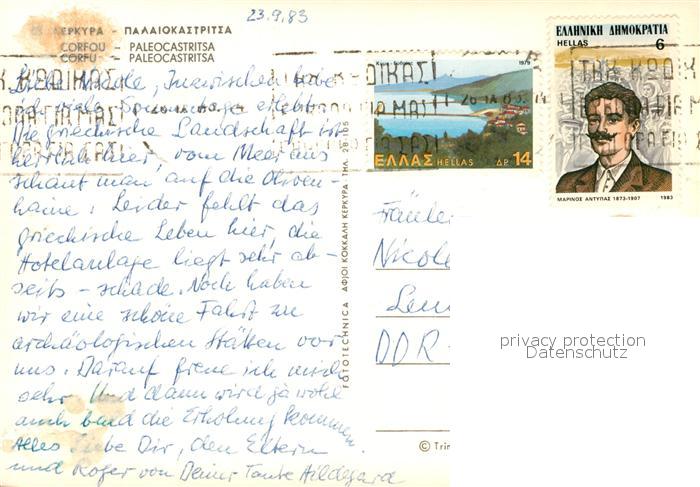 23.9.83
ΚΕΡΚΥΡΑ - ΠΑΛΑΙΟΚΑΣΤΡΙΤΣΑ
CORFOU - PALEOCASTRITSA
CORFU - PALEOCASTRITSA
Liebe Nicole, Inzwischen habe
ich viele Sonnentage erlebt.
Die griechische Landschaft ist
herrlich hier, vom Meer aus
schaut man auf die Oliven-
haine. Leider fehlt das
griechische Leben hier, die
Hotelanlage liegt sehr ab-
seits - schade. Noch haben
wir eine schöne Fahrt zu
archäologischen Stätten vor
uns. Darauf freue ich mich
sehr. Und dann wird ja wohl
auch bald die Erholung kommen.
Alles Liebe Dir, den Eltern
und Roger von Deiner Tante Hildegard
FOTOTECHNICA ΑΦ/ΟΙ ΚΟΚΚΑΛΗ ΚΕΡΚΥΡΑ ΤΗΛ. 28-105
1979
ΕΛΛΑΣ HELLAS ΔΡ 14
ΕΛΛΗΝΙΚΗ ΔΗΜΟΚΡΑΤΙΑ
HELLAS 6
ΜΑΡΙΝΟΣ ΑΝΤΥΠΑΣ 1873-1907 1983
Fräulei
Nicol
DDR-
© Tri
privacy protection
Datenschutz